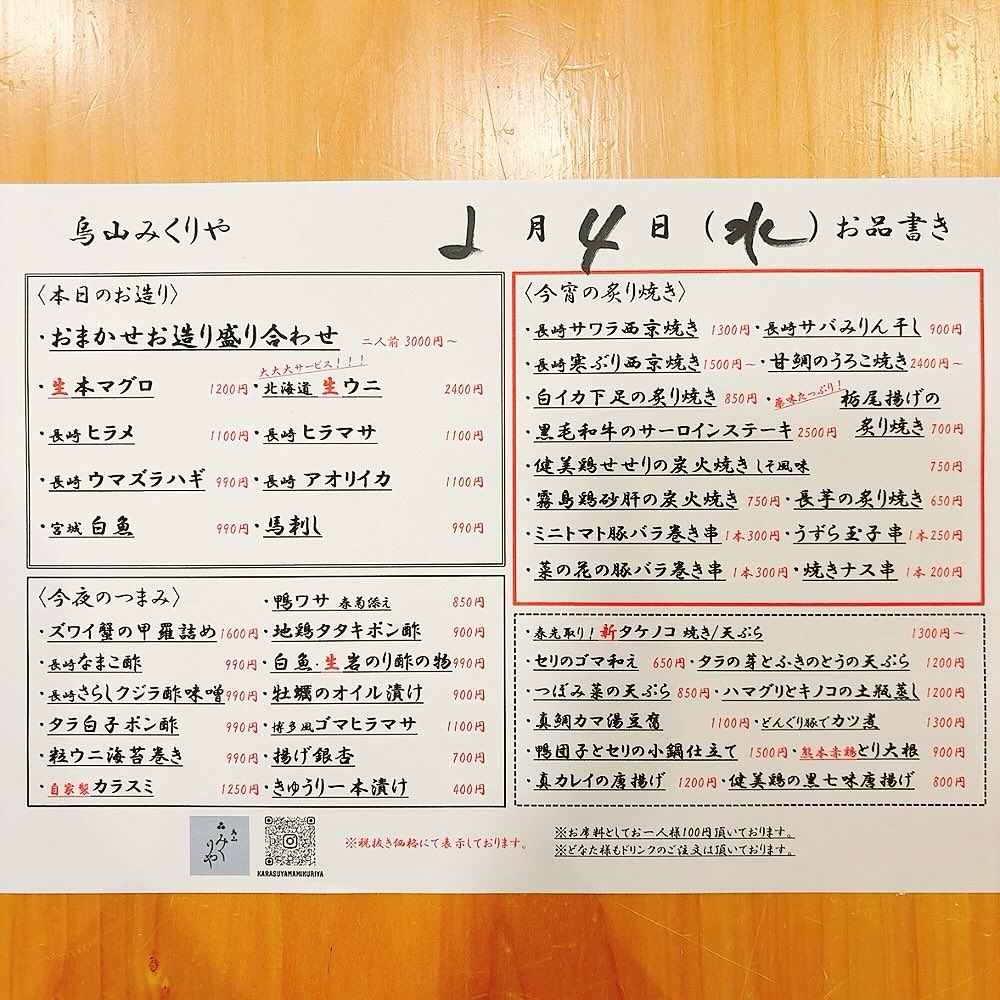 烏山みくりや
2月4日(水)お品書き
〈本日のお造り〉
・おまかせお造り盛り合わせ 二人前 3000円~
大大大サービス!!!
・生本マグロ 1200円・北海道 生ウニ 2400円
・長崎 ヒラメ 1100円・長崎 ヒラマサ 1100円
・長崎 ウマズラハギ 990円・長崎 アオリイカ 1100円
・宮城 白魚 990円・馬刺し 990円
〈今夜のつまみ〉
・鴨ワサ 春菊添え 850円
・ズワイ蟹の甲羅詰め 1600円・地鶏タタキポン酢 900円
・長崎なまこ酢 990円・白魚・生岩のり酢の物 990円
・長崎さらしクジラ酢味噌 990円・牡蠣のオイル漬け 900円
・タラ白子ポン酢 990円・博多風ゴマヒラマサ 1100円
・粒ウニ海苔巻き 990円・揚げ銀杏 700円
・自家製カラスミ 1250円・きゅうり一本漬け 400円
〈今宵の炙り焼き〉
・長崎サワラ西京焼き 1300円・長崎サバみりん干し 900円
・長崎寒ぶり西京焼き 1500円~・甘鯛のうろこ焼き 2400円~
・白イカ下足の炙り焼き 850円・薬味たっぷり!栃尾揚げの
・黒毛和牛のサーロインステーキ 2500円 炙り焼き 700円
・健美鶏せせりの炭火焼き しそ風味 750円
・霧島鶏砂肝の炭火焼き 750円・長芋の炙り焼き 650円
・ミニトマト豚バラ巻き串 1本300円・うずら玉子串 1本250円
・菜の花の豚バラ巻き串 1本300円・焼きナス串 1本200円
・春先取り!新タケノコ 焼き/天ぷら 1300円~
・セリのゴマ和え 650円・タラの芽とふきのとうの天ぷら 1200円
・つぼみ菜の天ぷら 850円・ハマグリとキノコの土瓶蒸し 1200円
・真鯛カマ湯豆腐 1100円・どんぐり豚でカツ煮 1300円
・鴨団子とセリの小鍋仕立て 1500円・熊本赤鶏とり大根 900円
・真カレイの唐揚げ 1200円・健美鶏の黒七味唐揚げ 800円
烏山
みくりや
KARASUYAMAMIKURIYA
※税抜き価格にて表示しております。
※お席料としてお一人様100円頂いております。
※どなた様もドリンクのご注文は頂いております。